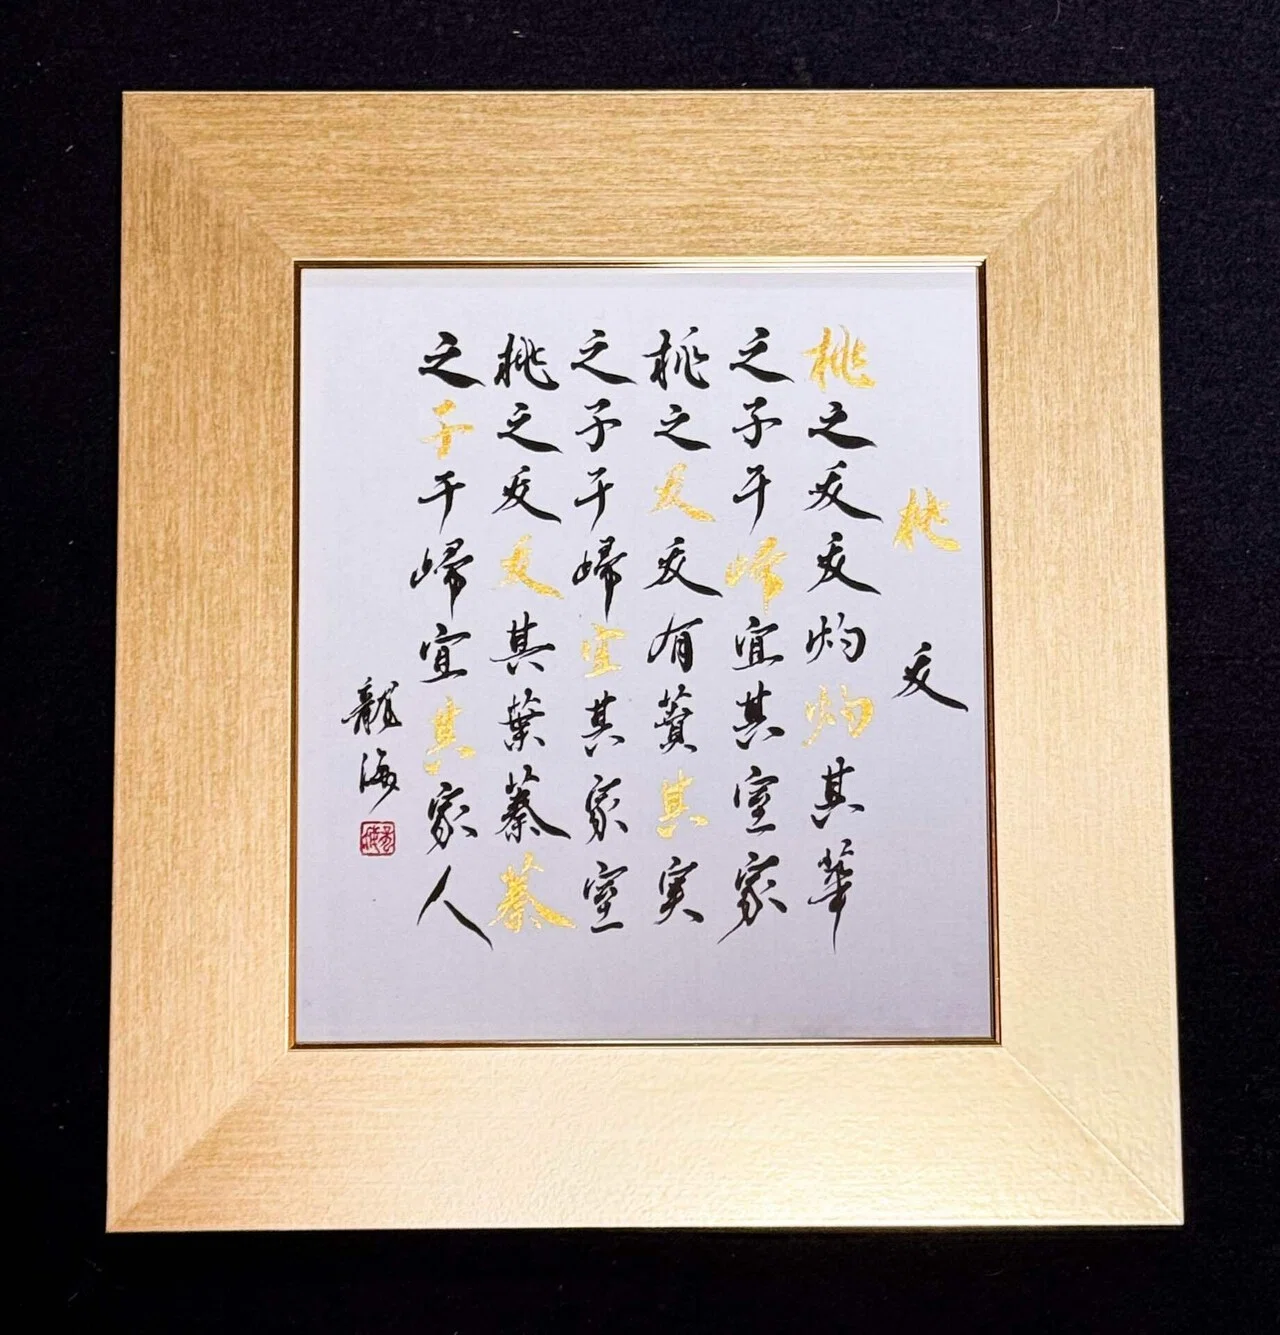 桃夭
桃之夭夭灼灼其華
之子于帰宜其室家
桃之夭夭有蕡其実
之子于帰宜其家室
桃之夭夭其葉蓁蓁
之子于帰宜其家人
龍海